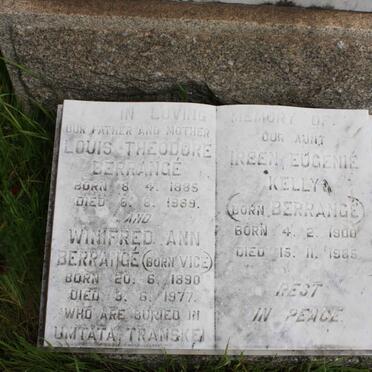 IN LOVING
OUR FATHER AND MOTHER
LOUIS THEODORE
BERRANGÉ
BORN 8. 4. 1885
DIED 6. 8. 1969.
AND
WINIFRED ANN
BERRANGÉ (BORN VICE)
BORN 20. 6. 1890
DIED 3. 6. 1977.
WHO ARE BURIED IN
UMTATA, TRANSKEI
MEMORY OF:
OUR AUNT
IREEN EUGENIE
KELLY
(BORN BERRANGÉ)
BORN 4. 2. 1900
DIED 15. 11. 1985
REST
IN PEACE.